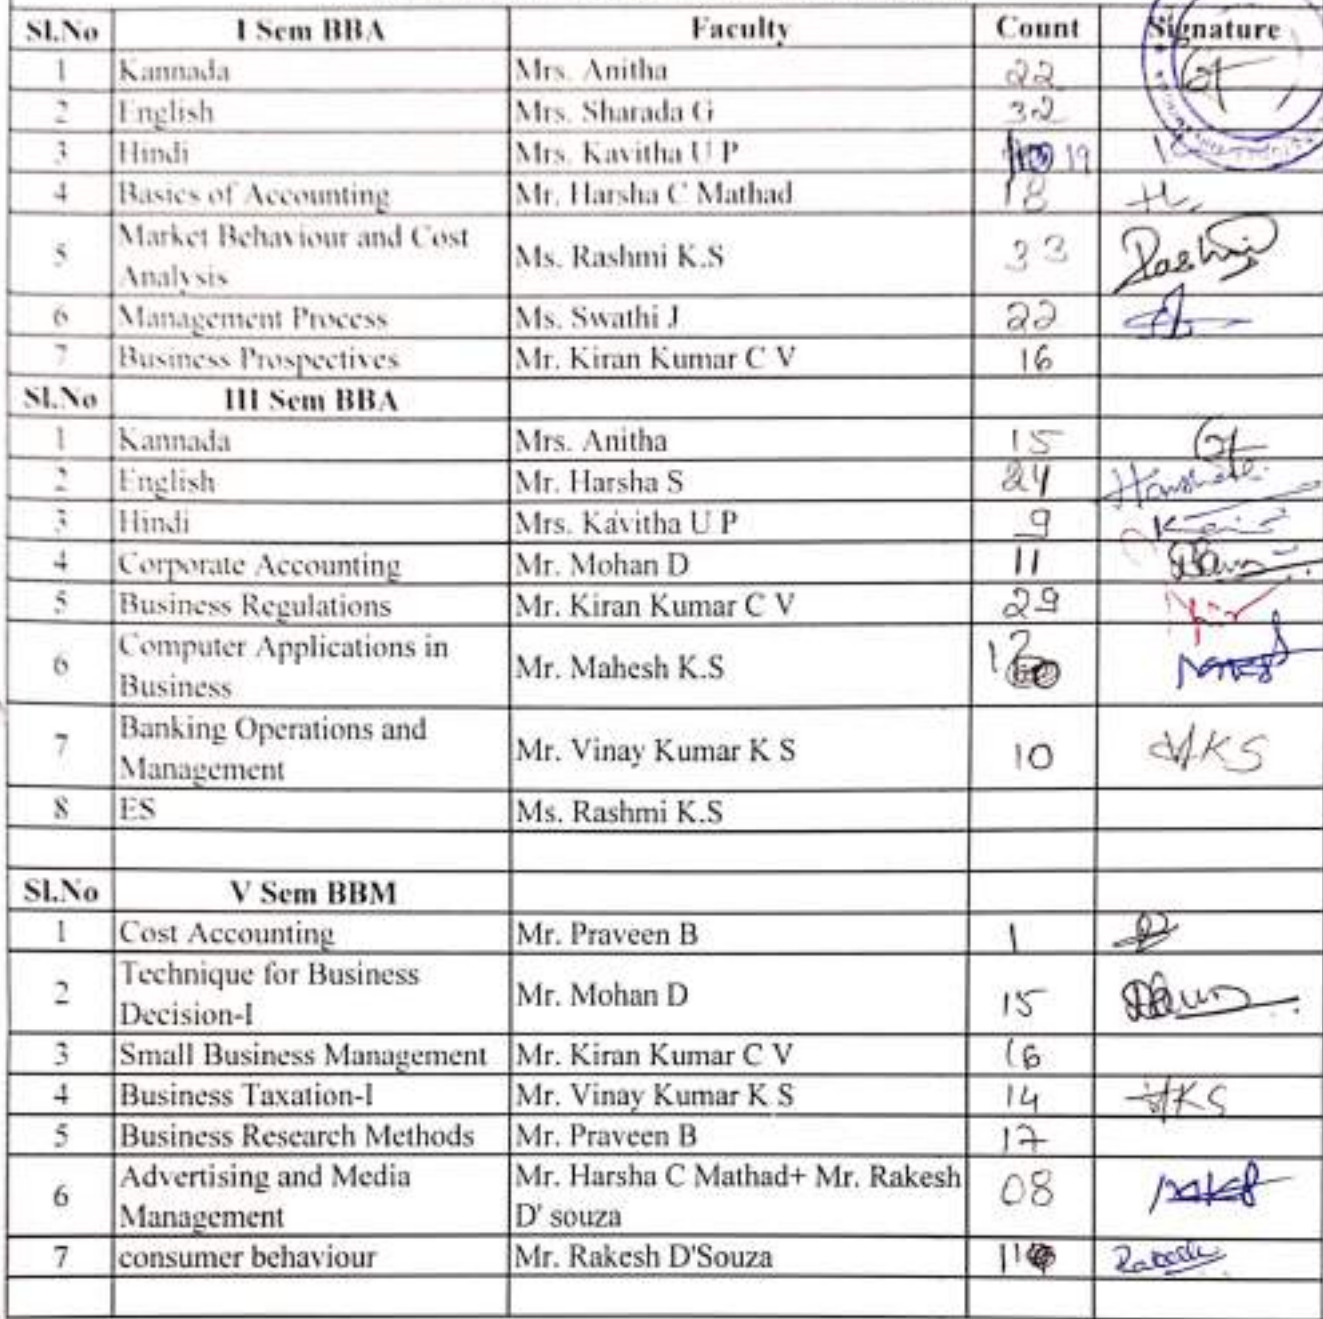 Sl.No I Sem BBA Faculty Count Signature
1 Kannada Mrs. Anitha 22
2 English Mrs. Sharada G 32
3 Hindi Mrs. Kavitha U P 19
4 Basics of Accounting Mr. Harsha C Mathad 18
5 Market Behaviour and Cost
Analysis Ms. Rashmi K.S 33 Rashmi
6 Management Process Ms. Swathi J 22
7 Business Prospectives Mr. Kiran Kumar C V 16
Sl.No III Sem BBA
1 Kannada Mrs. Anitha 15
2 English Mr. Harsha S 24
3 Hindi Mrs. Kavitha U P 9
4 Corporate Accounting Mr. Mohan D 11
5 Business Regulations Mr. Kiran Kumar C V 29
6 Computer Applications in
Business Mr. Mahesh K.S 12
7 Banking Operations and
Management Mr. Vinay Kumar K S 10 VKS
8 ES Ms. Rashmi K.S
Sl.No V Sem BBM
1 Cost Accounting Mr. Praveen B 1
2 Technique for Business
Decision-I Mr. Mohan D 15
3 Small Business Management Mr. Kiran Kumar C V 16
4 Business Taxation-I Mr. Vinay Kumar K S 14 VKS
5 Business Research Methods Mr. Praveen B 17
6 Advertising and Media Mr. Harsha C Mathad+ Mr. Rakesh 08
Management D' souza
7 consumer behaviour Mr. Rakesh D'Souza 11